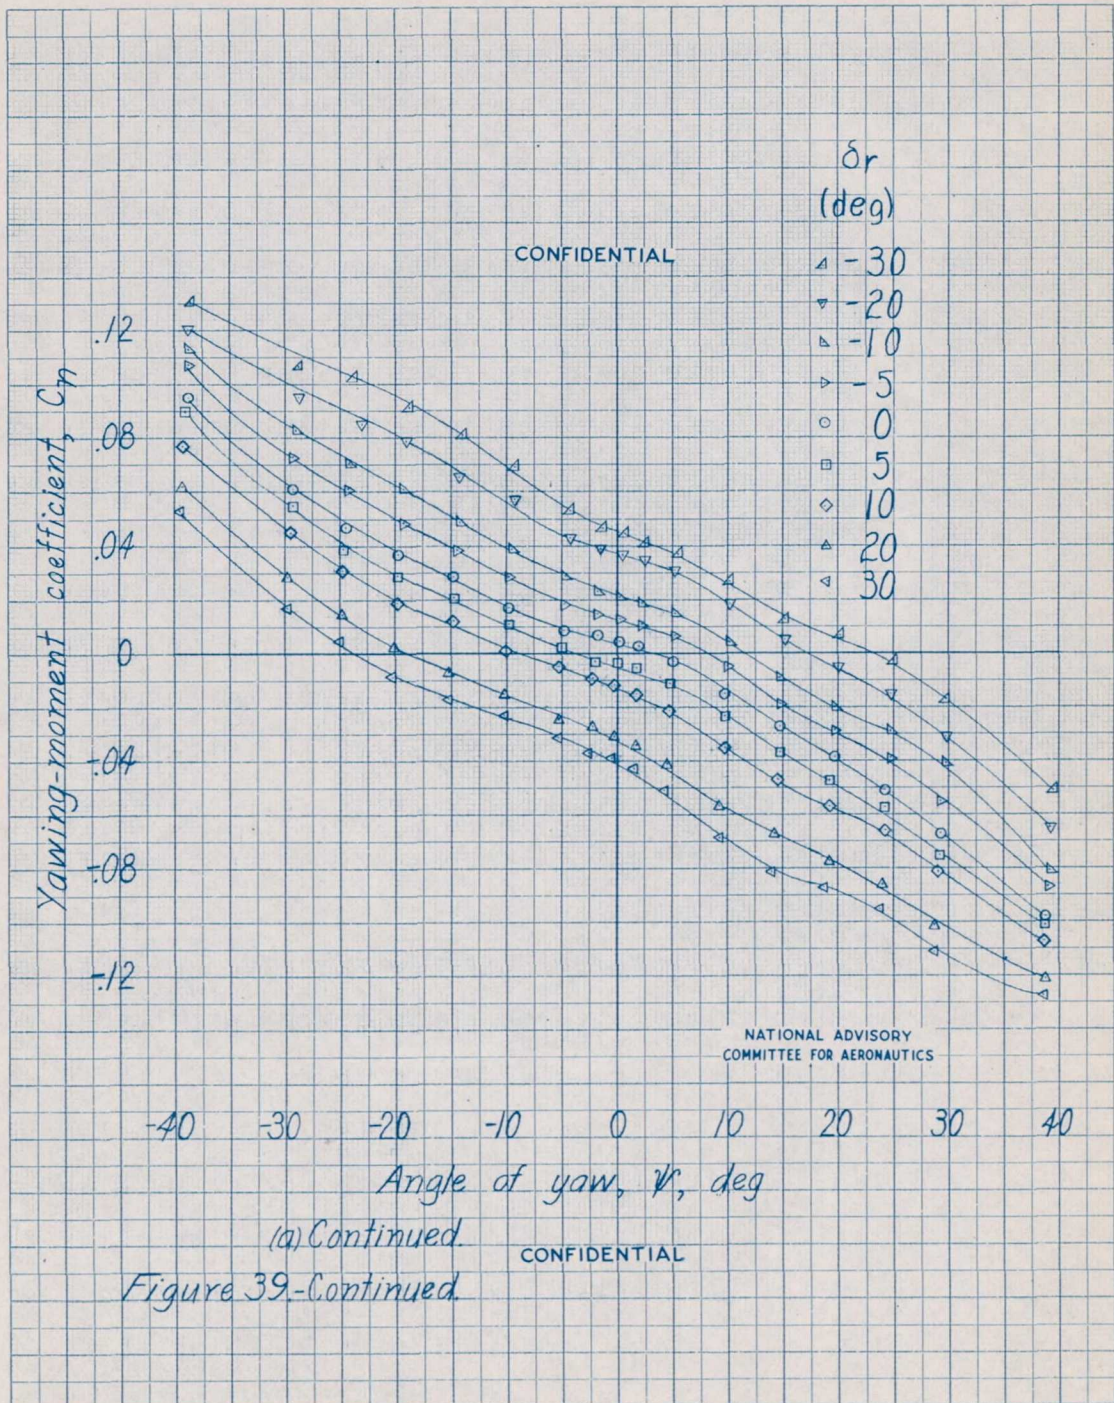 δr
(deg)
CONFIDENTIAL
-30
-20
-10
-5
0
5
10
20
30
.12
.08
.04
0
-.04
-.08
-.12
Yawing-moment coefficient, Cn
NATIONAL ADVISORY
COMMITTEE FOR AERONAUTICS
-40 -30 -20 -10 0 10 20 30 40
Angle of yaw, ψ, deg
(a) Continued.
CONFIDENTIAL
Figure 39.-Continued.